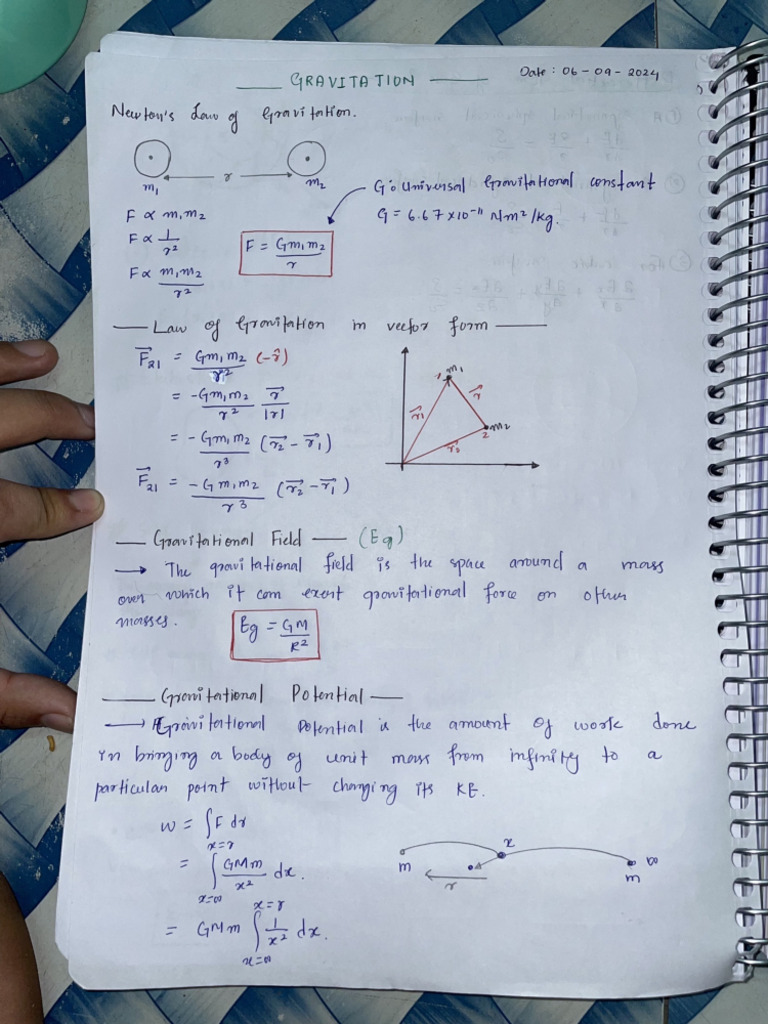 GRAVITATION
Date: 06-09-2024
Newton's Law of Gravitation.
m₁ r m₂
F ∝ m₁m₂
F ∝ 1/r²
F ∝ m₁m₂/r²
F = Gm₁m₂/r
G: Universal Gravitational constant
G = 6.67×10⁻¹¹ Nm²/kg.
Law of Gravitation in vector form
F⃗₂₁ = Gm₁m₂/r² (-r̂)
= -Gm₁m₂/r² r⃗/|r|
= -Gm₁m₂/r³ (r⃗₂ - r⃗₁)
F⃗₂₁ = -Gm₁m₂/r³ (r⃗₂ - r⃗₁)
1 m₁
r⃗₁ r⃗
2 m₂
r⃗₂
Gravitational Field (Eg)
→ The gravitational field is the space around a mass
over which it can exert gravitational force on other
masses.
Eg = GM/R²
Gravitational Potential
→ Gravitational Potential is the amount of work done
in bringing a body of unit mass from infinity to a
particular point without changing its KE.
W = ∫F dr
= ∫_{x=∞}^{x=r} GMm/x² dx.
= GMm ∫_{x=∞}^{x=r} 1/x² dx.
x
m ∞
r m